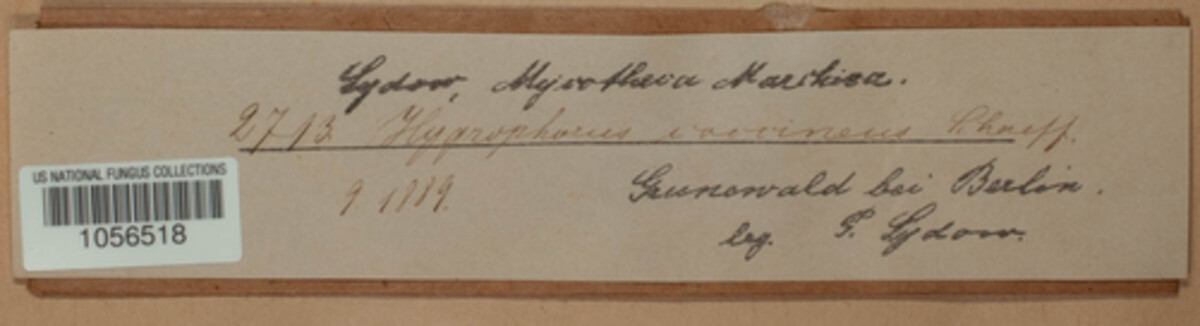 Sydow, Mycotheca Marchica.
2713. Hygrophorus coccineus Schaeff.
9. 1889.
Grunewald bei Berlin.
leg. P. Sydow.
US NATIONAL FUNGUS COLLECTIONS
1056518